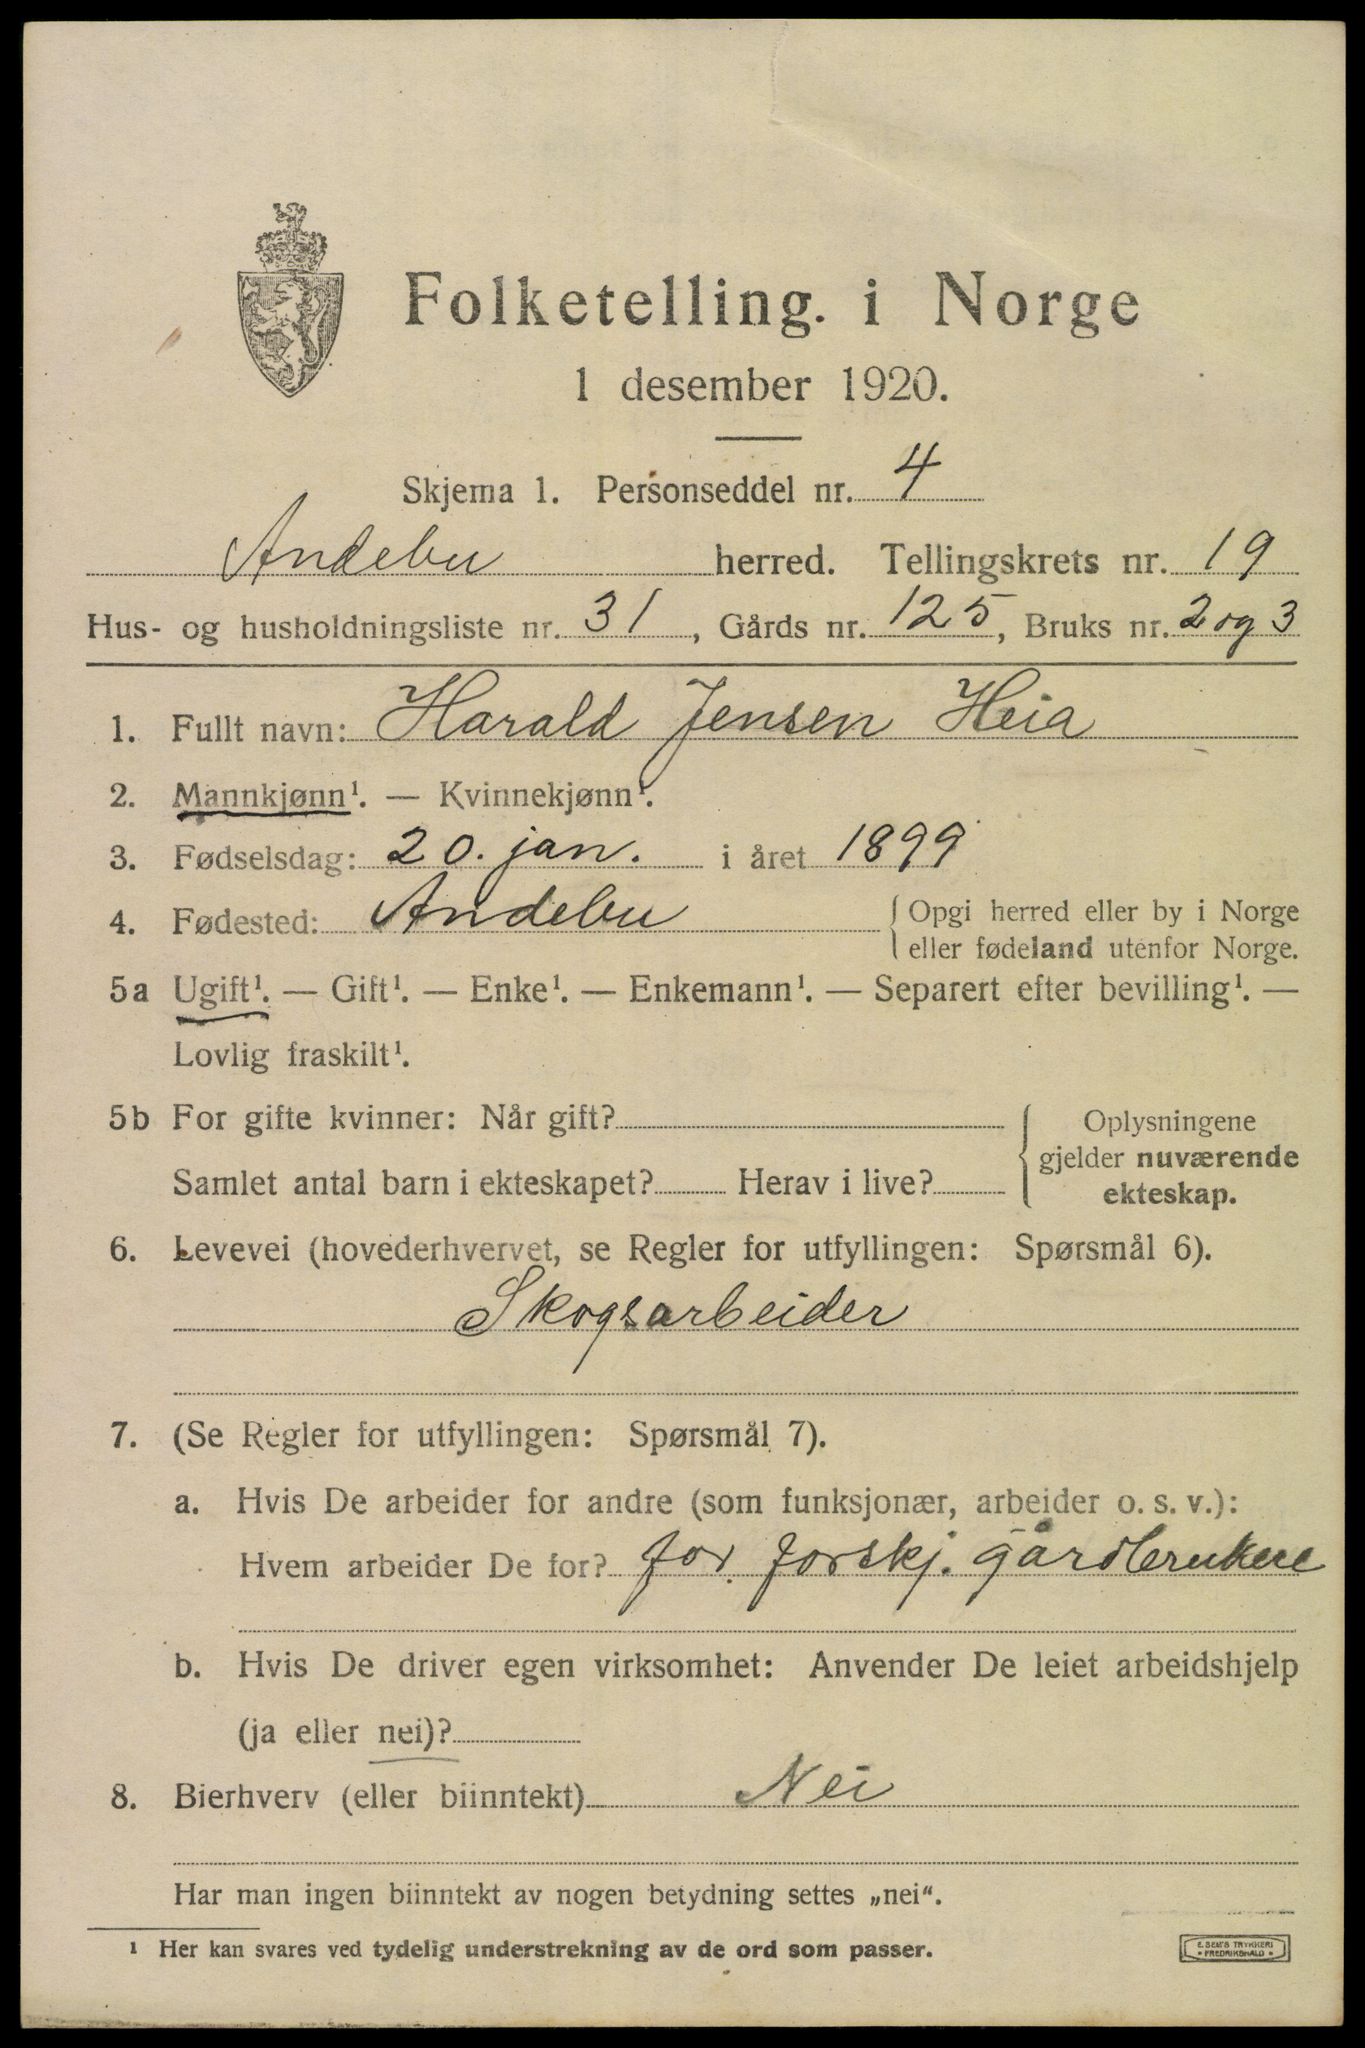 Folketelling. i Norge
1 desember 1920.
Skjema 1. Personseddel nr. 4
Andebu herred. Tellingskrets nr. 19
Hus- og husholdningsliste nr. 31, Gårds nr. 125, Bruks nr. 2 og 3
1. Fullt navn: Harald Jensen Heia
2. Mannkjønn¹. — Kvinnekjønn¹.
3. Fødselsdag: 20. jan. i året 1899
4. Fødested: Andebu { Opgi herred eller by i Norge
eller fødeland utenfor Norge.
5a Ugift¹. — Gift¹. — Enke¹. — Enkemann¹. — Separert efter bevilling¹. —
Lovlig fraskilt¹.
5b For gifte kvinner: Når gift?
Samlet antal barn i ekteskapet? Herav i live?
{ Oplysningene
gjelder nuværende
ekteskap.
6. Levevei (hovederhvervet, se Regler for utfyllingen: Spørsmål 6).
Skogsarbeider
7. (Se Regler for utfyllingen: Spørsmål 7).
a. Hvis De arbeider for andre (som funksjonær, arbeider o. s. v.):
Hvem arbeider De for? for. forskj. gårdbrukere
b. Hvis De driver egen virksomhet: Anvender De leiet arbeidshjelp
(ja eller nei)?
8. Bierhverv (eller biinntekt) Nei
Har man ingen biinntekt av nogen betydning settes „nei“.
¹ Her kan svares ved tydelig understrekning av de ord som passer.
E. SEM'S TRYKKERI
• FREDRIKSHALD •